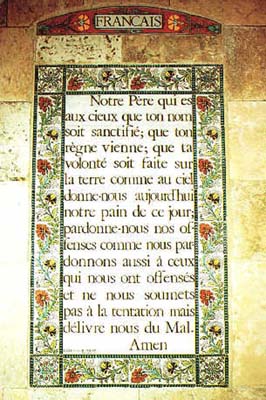 FRANCAIS
Notre Père qui es
aux cieux que ton nom
soit sanctifié; que ton
règne vienne; que ta
volonté soit faite sur
la terre comme au ciel
donne-nous aujourd'hui
notre pain de ce jour;
pardonne-nous nos of-
fenses comme nous par-
donnons aussi à ceux
qui nous ont offensés
et ne nous soumets
pas à la tentation mais
délivre nous du Mal.
Amen